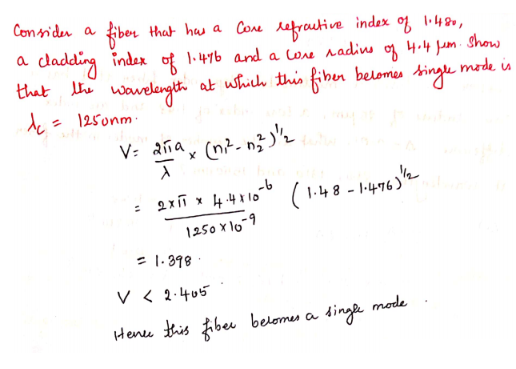 Consider a fiber that has a Core refractive index of 1.480,
a cladding index of 1.476 and a core radius of 4.4 μm. Show
that the wavelength at which this fiber becomes single mode is
λc = 1250nm.
V = 2πa/λ × (n1² - n2²)^1/2
= 2×π × 4.4×10^-6 / 1250×10^-9 (1.48 - 1.476)^1/2
= 1.398.
V < 2.405
Hence this fiber becomes a single mode.